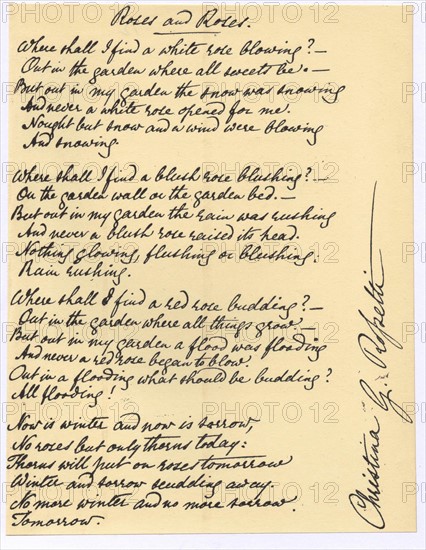 Roses and Roses.
Where shall I find a white rose blowing? —
Out in the garden where all sweets be. —
But out in my garden the snow was snowing
And never a white rose opened for me.
Nought but snow and a wind were blowing
And snowing.
Where shall I find a blush rose blushing? —
On the garden wall or the garden bed. —
But out in my garden the rain was rushing
And never a blush rose raised its head.
Nothing glowing, flushing or blushing:
Rain rushing.
Where shall I find a red rose budding? —
Out in the garden where all things grow. —
But out in my garden a flood was flooding
And never a red rose began to blow.
Out in a flooding what should be budding?
All flooding!
Now is winter and now is sorrow,
No roses but only thorns today:
Thorns will put on roses tomorrow
Winter and sorrow scudding away.
No more winter and no more sorrow
Tomorrow.
Christina G. Rossetti
PHOTO 12